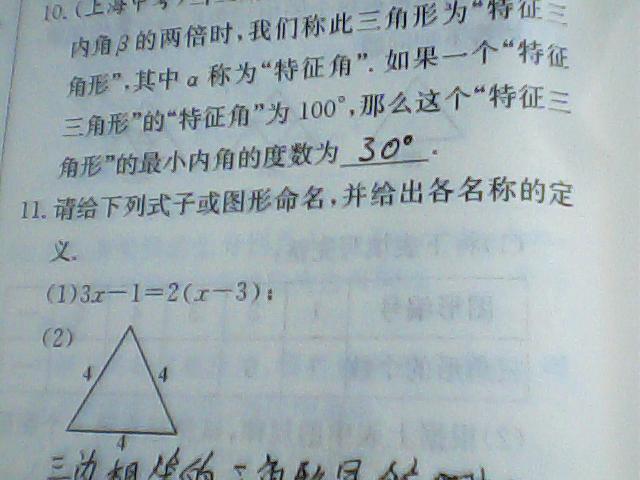 10. (上海中考)
内角β的两倍时,我们称此三角形为“特征三
角形”,其中α称为“特征角”. 如果一个“特征
三角形”的“特征角”为100°,那么这个“特征三
角形”的最小内角的度数为 30° .
11. 请给下列式子或图形命名,并给出各名称的定
义.
(1)3x-1=2(x-3);
(2)
4 4
4
三边相等的三角形是